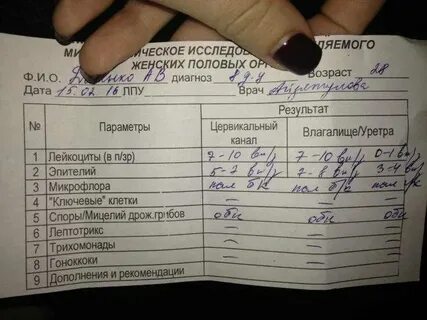 МИ ИЧЕСКОЕ ИССЛЕДОВ ЛЯЕМОГО
ЖЕНСКИХ ПОЛОВЫХ ОРГ
Ф.И.О. АВ диагноз Возраст 28
Дата 15.02 16 ЛПУ Врач
Результат
№ Параметры Цервикальный канал Влагалище/Уретра
1 Лейкоциты (в п/зр) 7-10 в п/з 7-10 в п/з 0-1 в п/з
2 Эпителий 5-7 в п/з 7-8 в п/з 3-4 в п/з
3 Микрофлора пал б/к пал б/к пал
4 "Ключевые" клетки — —
5 Споры/Мицелий дрож.грибов обн обн обн
6 Лептотрикс — —
7 Трихомонады — —
8 Гонококки — —
9 Дополнения и рекомендации